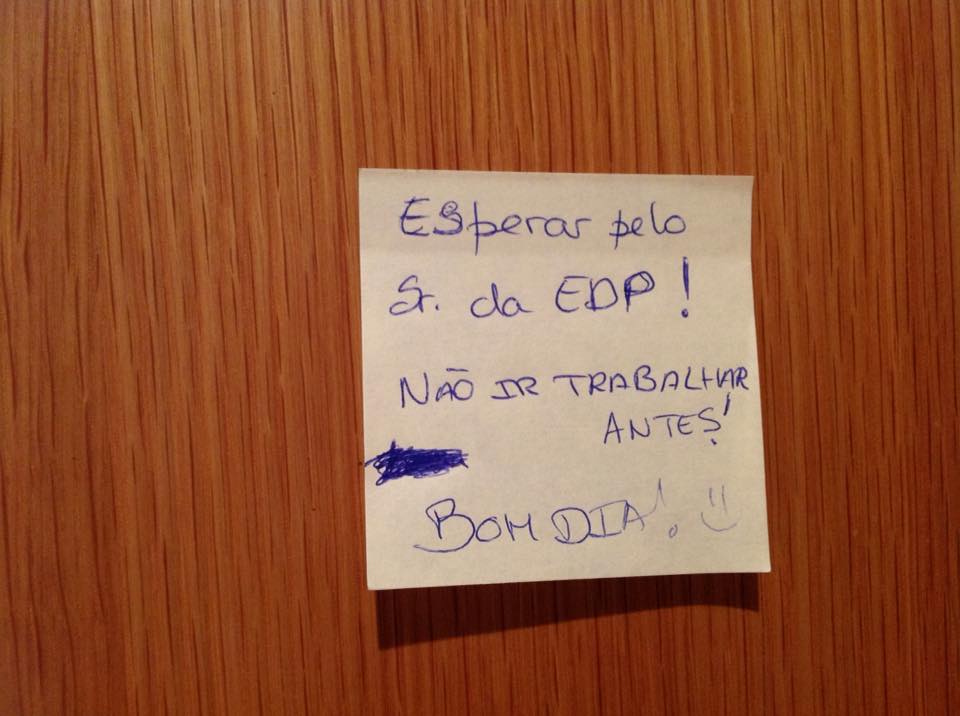 Esperar pelo
Sr. da EDP!
NÃO IR TRABALHAR
ANTES!
BOM DIA!